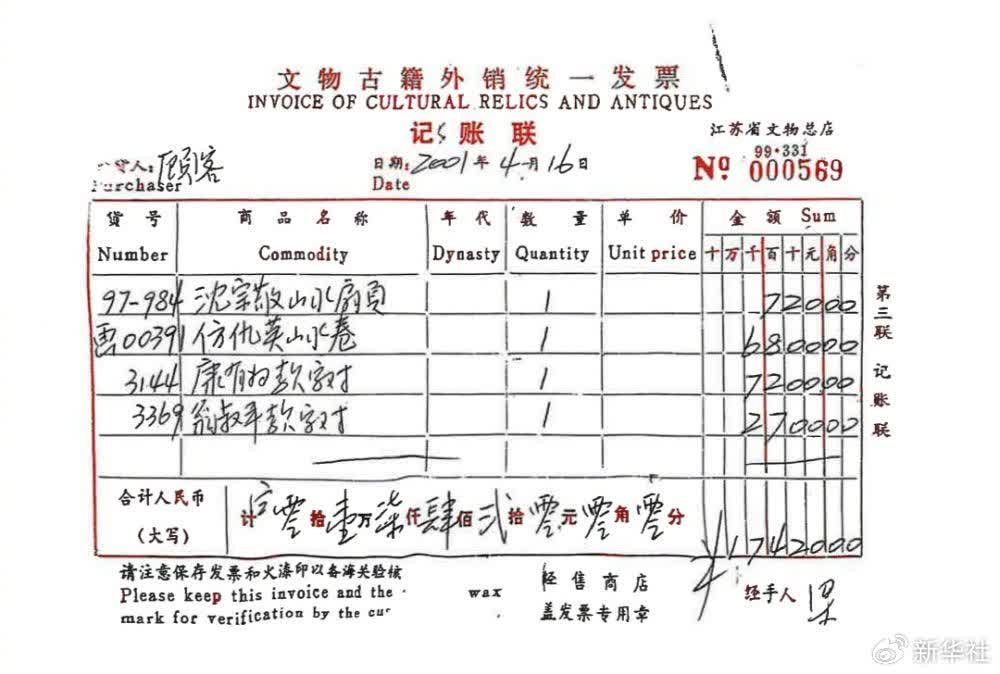 文物古籍外销统一发票
INVOICE OF CULTURAL RELICS AND ANTIQUES
记账联
江苏省文物总店
货人: 顾客
日期: 2001年4月16日
99·331
Purchaser
Date
Nº 000569
货号 商品名称 年代 数量 单价 金额 Sum
Number Commodity Dynasty Quantity Unit price 十万千百十元角分
97-984 沈宗敬山水扇页 1 72000
画00391 仿仇英山水卷 1 680000
3144 康有为款字对 1 720000
3369 翁叔平款字对 1 270000
合计人民币
(大写)
计 零拾壹万柒仟肆佰贰拾零元零角零分
¥1742000
第三联 记账联
请注意保存发票和火漆印以备海关验核
Please keep this invoice and the wax
mark for verification by the cus
经售商店
盖发票专用章
经手人 梁
新华社